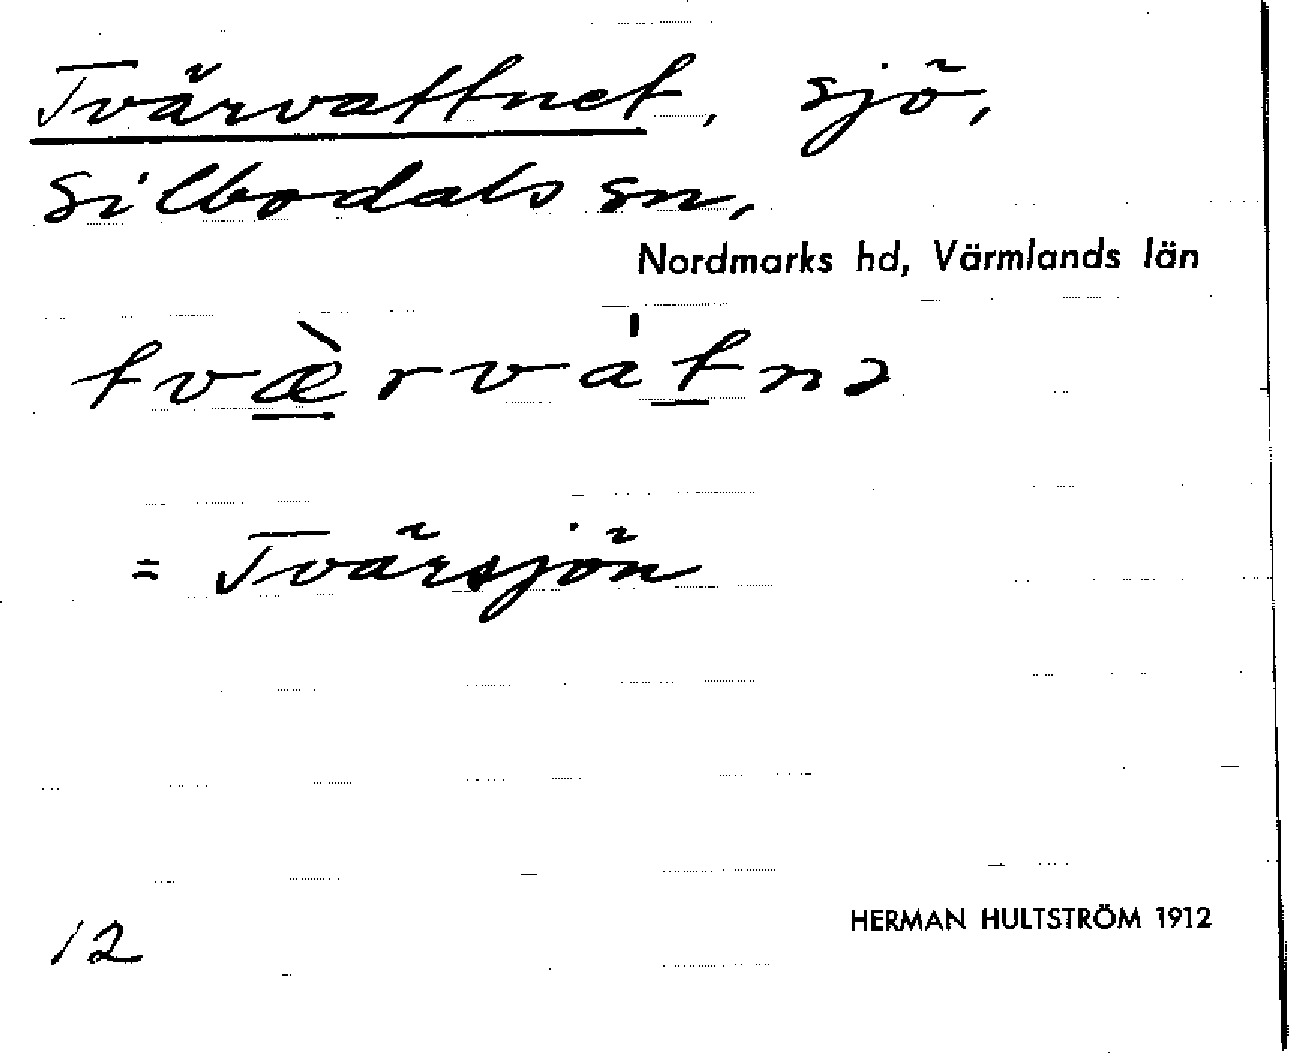 Tvärvattnet, sjö,
Silbodals sn,
Nordmarks hd, Värmlands län
tvæ̀rvátnə
= Tvärsjön
12
HERMAN HULTSTRÖM 1912